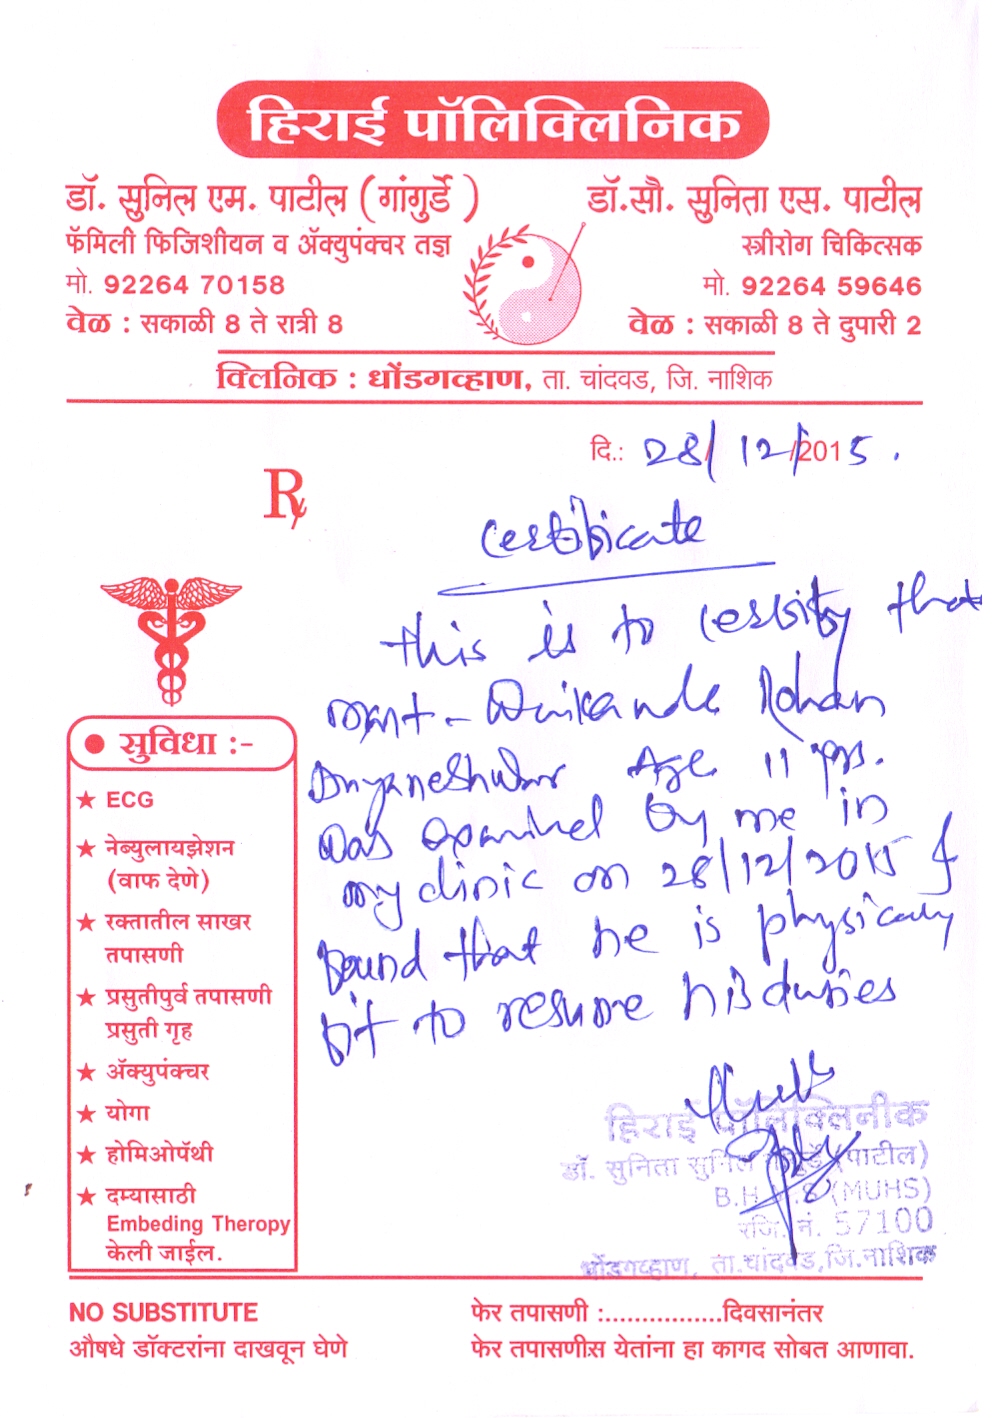 हिराई पॉलिक्लिनिक
डॉ. सुनिल एम. पाटील (गांगुर्डे)
फॅमिली फिजिशीयन व ॲक्युपंक्चर तज्ञ
मो. 92264 70158
वेळ : सकाळी 8 ते रात्री 8
डॉ.सौ. सुनिता एस. पाटील
स्त्रीरोग चिकित्सक
मो. 92264 59646
वेळ : सकाळी 8 ते दुपारी 2
क्लिनिक : धोंडगव्हाण, ता. चांदवड, जि. नाशिक
दि.: 28/12/2015.
Rx
Certificate
this is to certify that
Rohan
Dnyaneshwar Age 11 yrs.
was examined by me in
my clinic on 28/12/2015 &
found that he is physically
fit to resume his duties
सुविधा :-
★ ECG
★ नेब्युलायझेशन
(वाफ देणे)
★ रक्तातील साखर
तपासणी
★ प्रसुतीपुर्व तपासणी
प्रसुती गृह
★ ॲक्युपंक्चर
★ योगा
★ होमिओपॅथी
★ दम्यासाठी
Embeding Theropy
केली जाईल.
हिराई पॉलिक्लिनीक
डॉ. सुनिता सुनिल (पाटील)
(MUHS)
रजि. नं. 57100
धोंडगव्हाण, ता.चांदवड,जि.नाशिक
NO SUBSTITUTE
औषधे डॉक्टरांना दाखवून घेणे
फेर तपासणी :.................दिवसानंतर
फेर तपासणीस येतांना हा कागद सोबत आणावा.